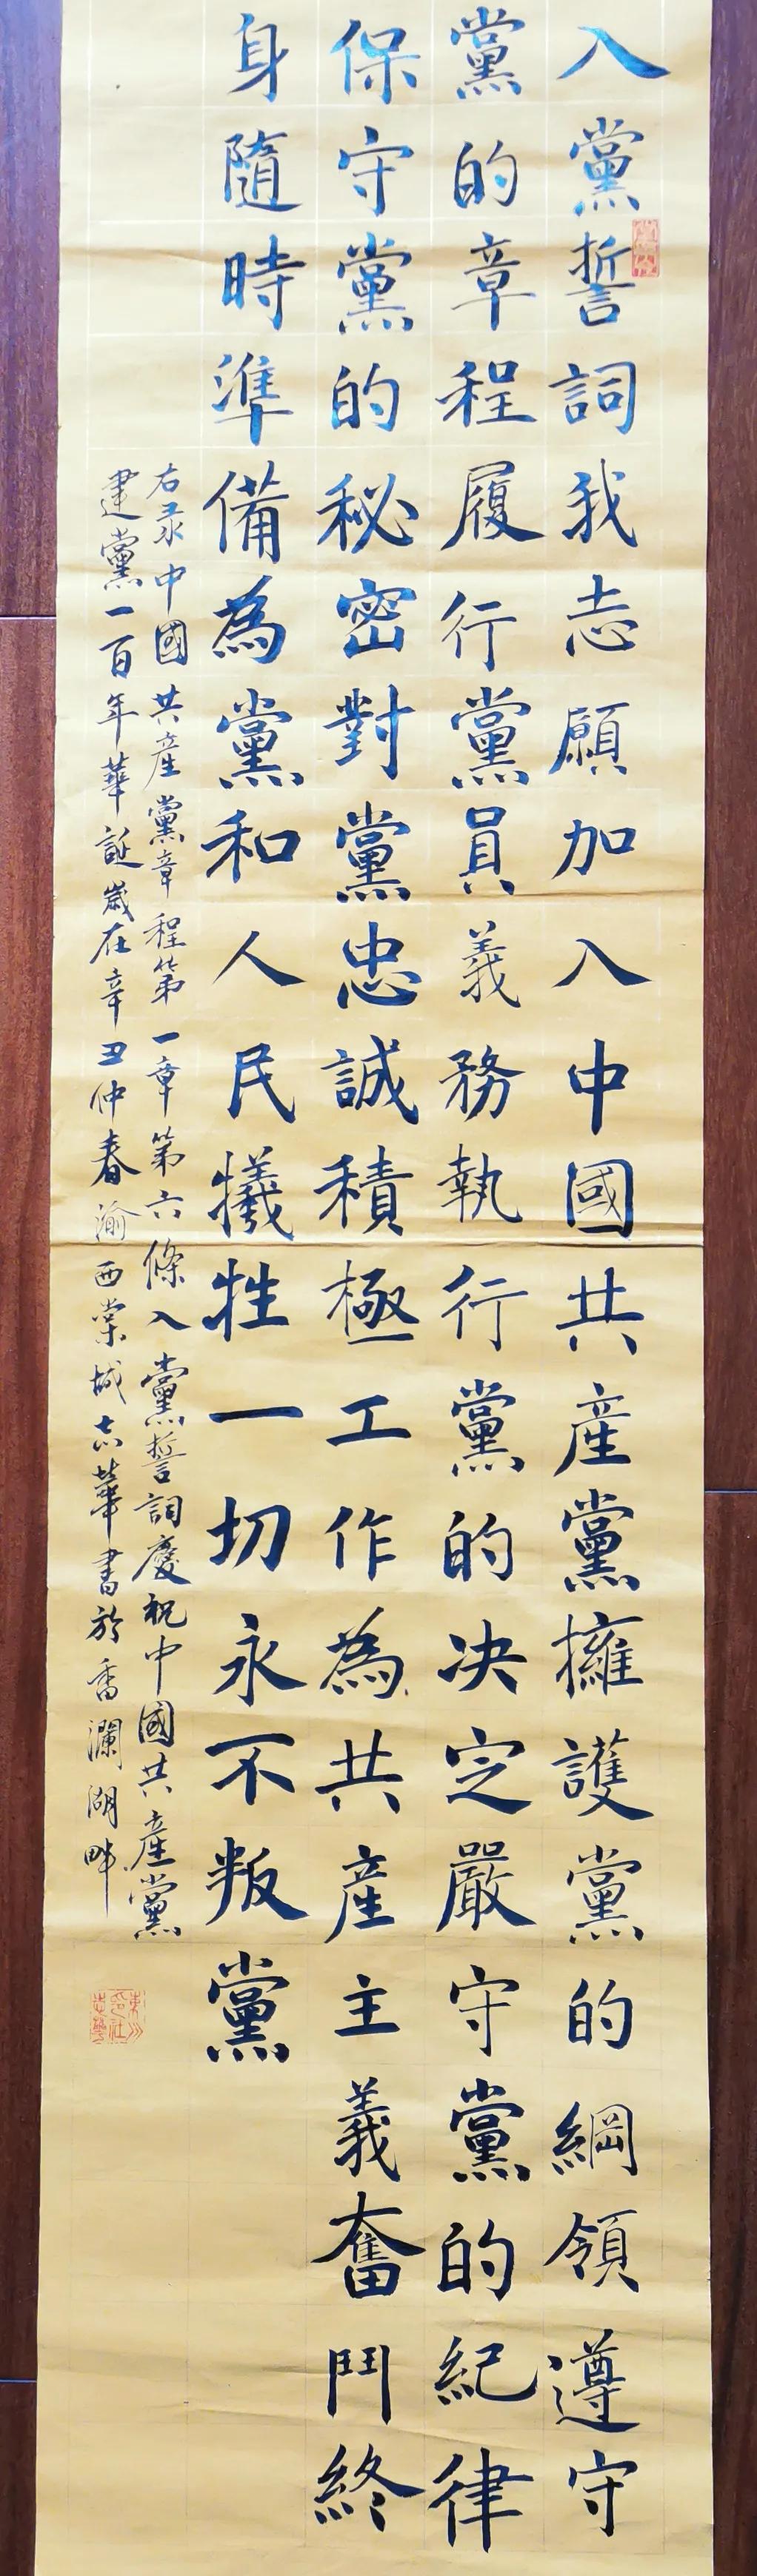 入黨誓詞我志願加入中國共產黨擁護黨的綱領遵守
黨的章程履行黨員義務執行黨的决定嚴守黨的紀律
保守黨的秘密對黨忠誠積極工作為共產主義奮鬥終
身隨時準備為黨和人民犧牲一切永不叛黨
右录中國共產黨章程第一章第六條入黨誓詞慶祝中國共產黨
建黨一百年華誕歲在辛丑仲春渝西棠城志華書於香瀾湖畔